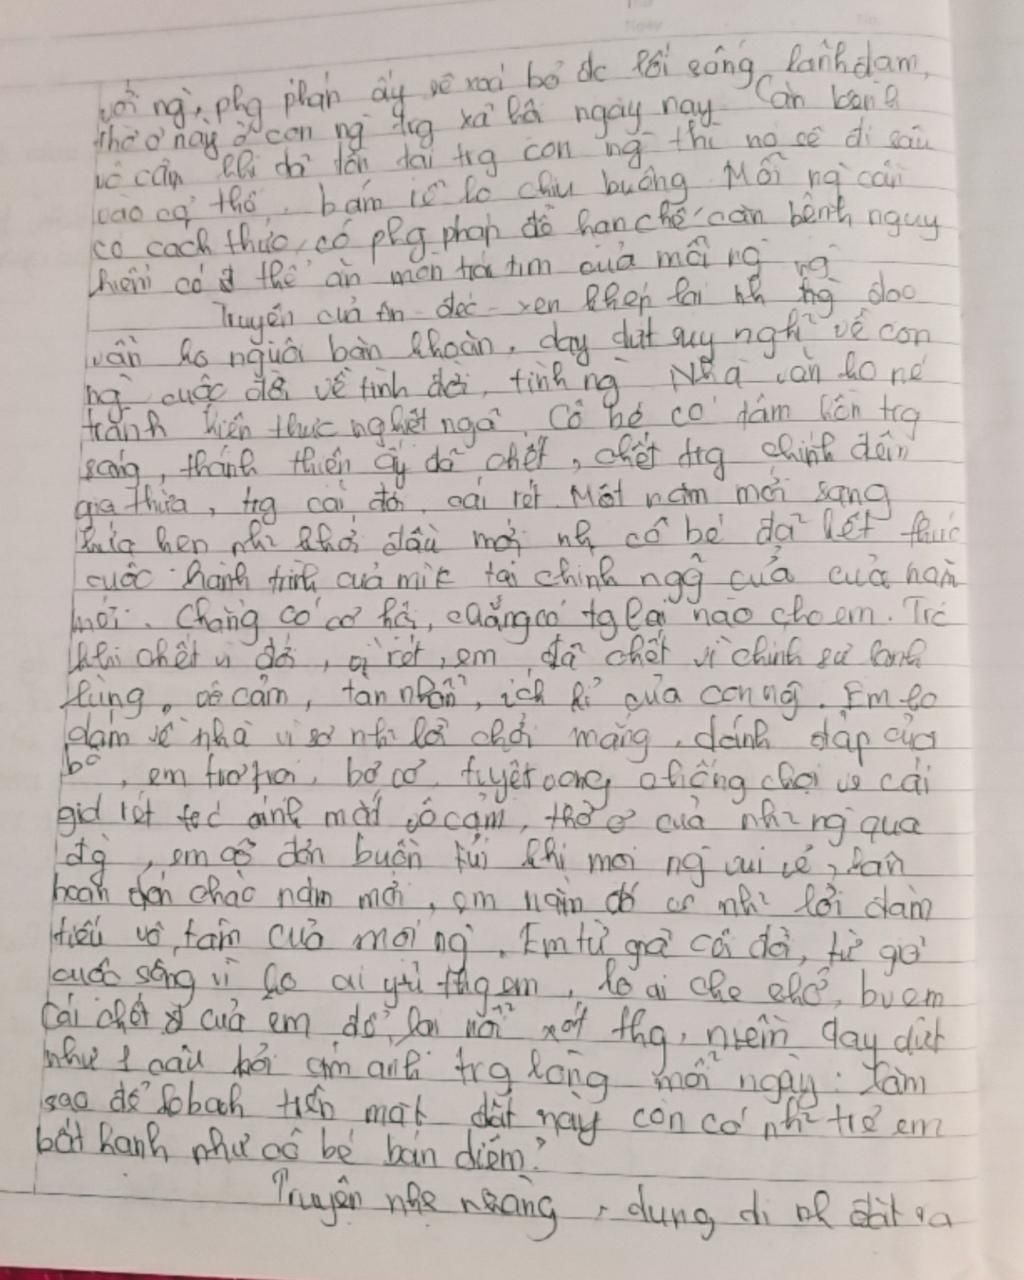 với ng`, phg pháp ấy sẽ xoá bỏ dc lối sống lãnh đạm,
thờ ơ này ở con ng` trg xã hội ngày nay. Căn bệnh
vô cảm khi đã tồn tại trg con ng` thì nó sẽ đi sâu
vào cơ thể, bám rễ ko chịu buông. Mỗi ng` cần
có cách thức, có phg pháp để hạn chế căn bệnh nguy
hiểm có thể ăn mòn trái tim của mỗi ng`
Truyện của An-đéc-xen khép lại nh ng` đọc
vẫn ko nguôi băn khoăn, day dứt suy nghĩ về con
ng` cuộc đời về tình đời, tình ng`. Nhà văn ko né
tránh hiện thực nghiệt ngã. Cô bé có tâm hồn trg
sáng, thánh thiện ấy đã chết, chết trg chính đêm
giao thừa, trg cái đói, cái rét. Một năm mới sang
hứa hẹn nh~ khởi đầu mới nh cô bé đã kết thúc
cuộc hành trình của mìh tại chính ngg~ của cửa năm
mới. Chẳng có cơ hội, chẳng có tg lai nào cho em. Trc
khi chết vì đói, vì rét, em đã chết vì chính sự lạnh
lùng, vô cảm, tàn nhẫn, ích kỉ của con ng`. Em ko
dám về nhà vì sợ nh~ lời chởi mắng, đánh đập của
bố, em trơ trọi, bơ vơ, tuyệt vọng chống chọi vs cái
giá rét trc ánh mắt vô cảm, thờ ơ của nh~ ng` qua
đg`, em cô đơn buồn tủi khi mọi ng` vui vẻ, hân
hoan đón chào năm mới, em nằm đó vs nh~ lời đàm
tiếu vô tâm của mọi ng`. Em từ giã cõi đời, từ giã
cuộc sống vì ko ai yêu thg em, ko ai che chở, bv em
Cái chết của em để lại nỗi xót thg, niềm day dứt
như 1 câu hỏi ám ảnh trg lòng mỗi ngày: Làm
sao để trên mặt đất này còn có nh~ trẻ em
bất hạnh như cô bé bán diêm?
Truyện nhẹ nhàng, dung dị nh đặt ra